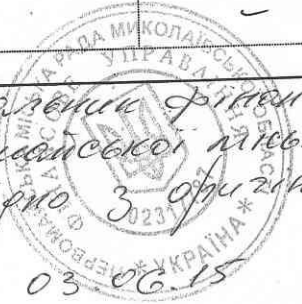 й
ПЕРВОМАЙСЬКА МІСЬКА РАДА МИКОЛАЇВСЬКОЇ ОБЛАСТІ
* УКРАЇНА *
ФІНАНСОВЕ УПРАВЛІННЯ
0231
7
альник фінан
майської міськ
дно з оригін
03.06.15